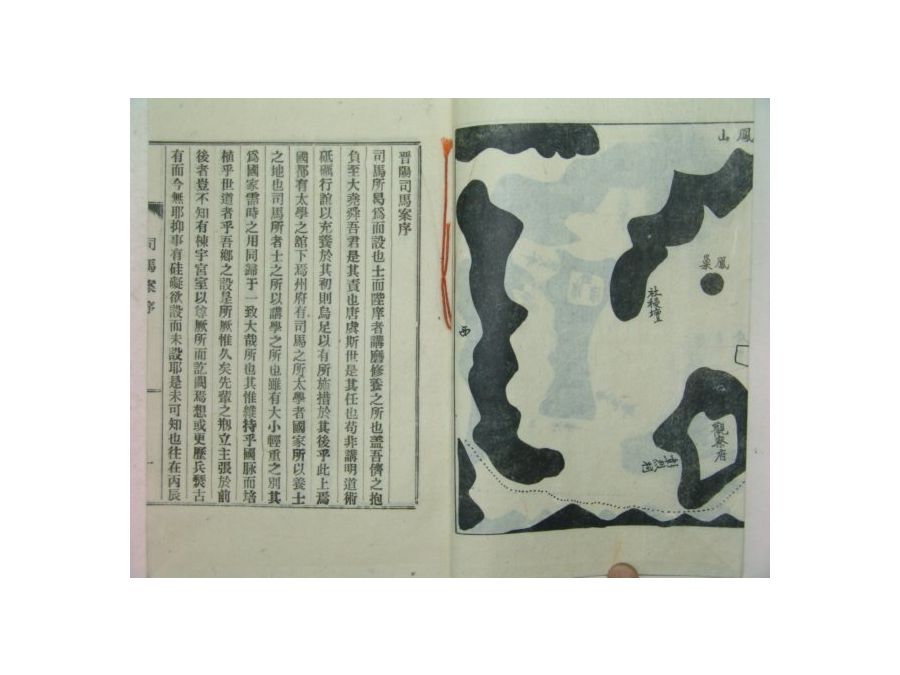 鳳山
鳳巢
社稷壇
西
觀察府
晋陽司馬案序
司馬所曷爲而設也士而陞庠者講磨修養之所也盖吾儕之抱
負至大堯舜吾君是其責也唐虞斯世是其任也苟非講明道術
砥礪行誼以充養於其初則烏足以有所施措於其後乎此上焉
國都有太學之舘下焉州府有司馬之所太學者國家所以養士
之地也司馬所者士之所以講學之所也雖有大小輕重之別其
爲國家需時之用同歸于一致大哉所也其惟維持乎國脉而培
植乎世道者乎吾鄕之設是所厥惟久矣先輩之刱立主張於前
後者豈不知有棟宇宮室以尊厥所而訖闃焉想或更歷兵燹古
有而今無耶抑事有硅礙欲設而未設耶是未可知也往在丙辰
司馬案序
一